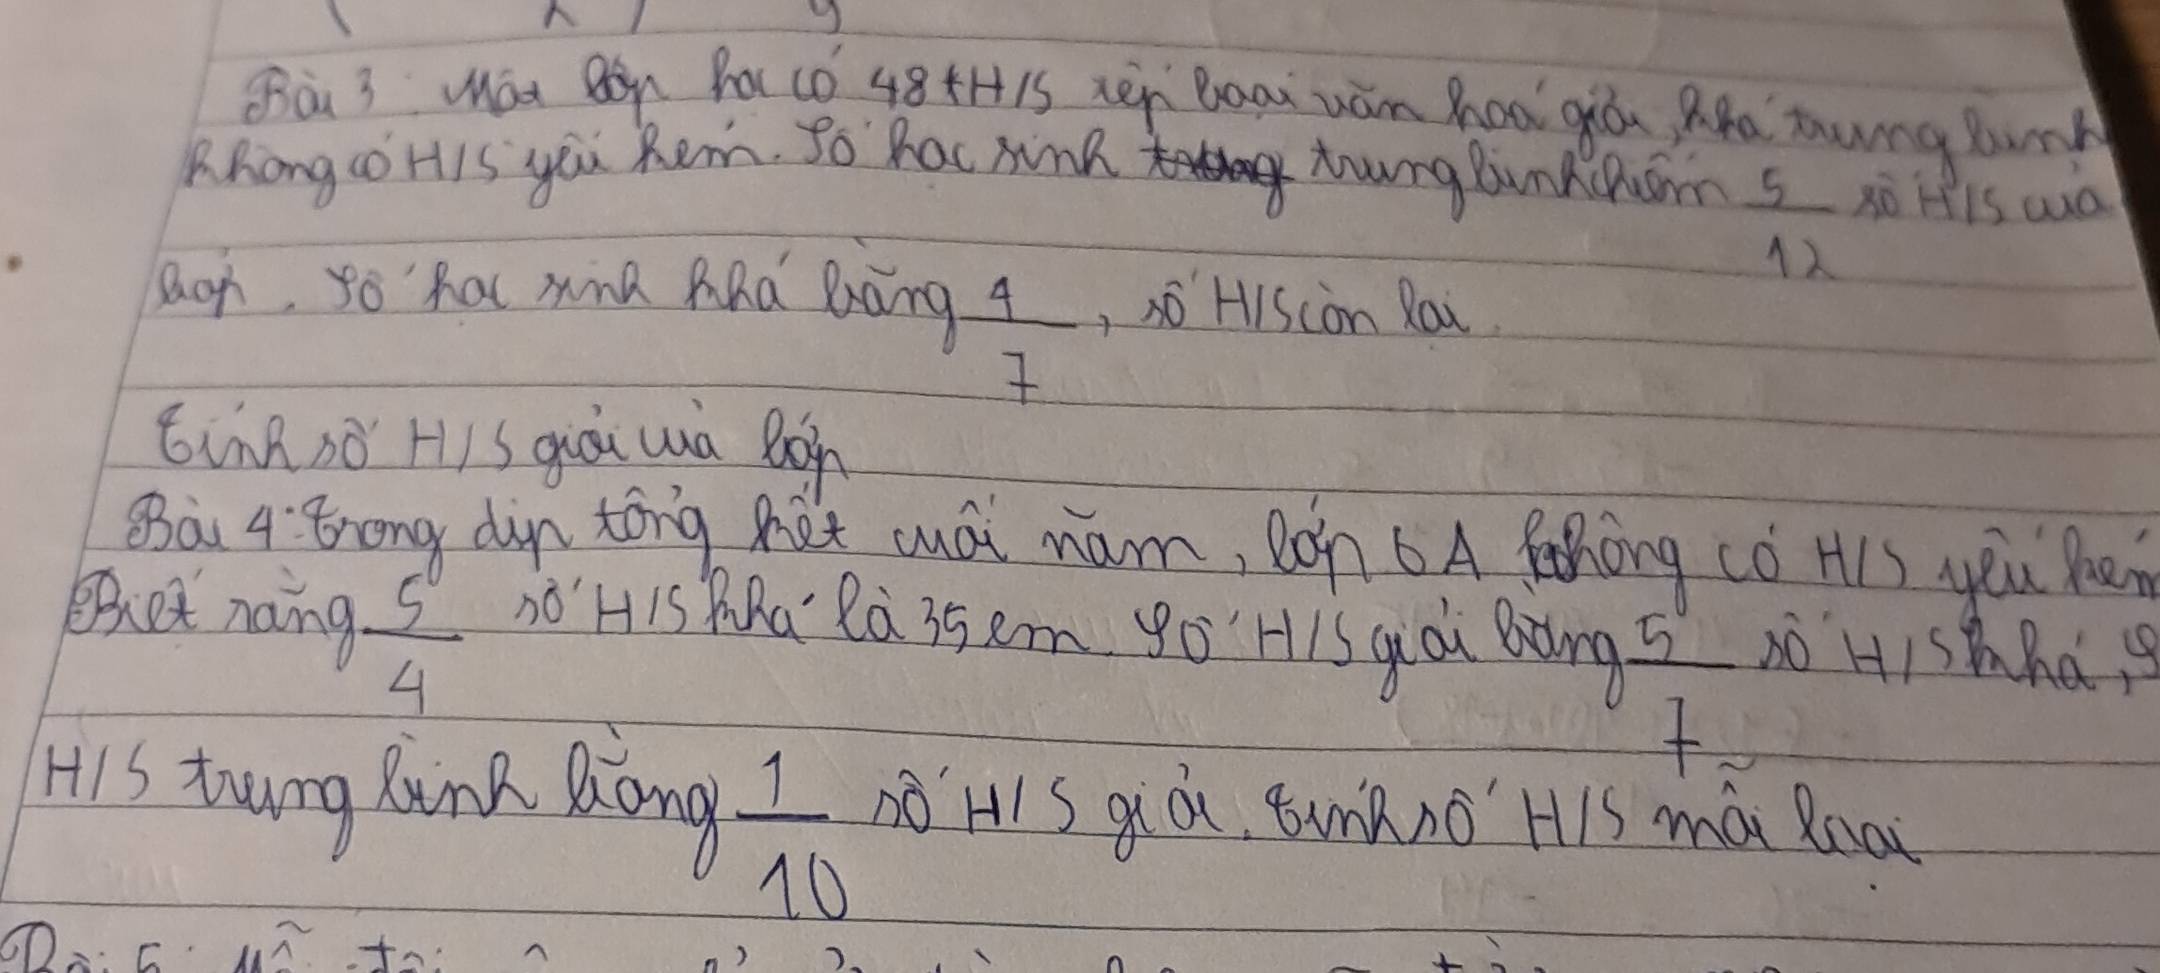 Bài 3: Một lớp học có 48 H/S xếp loại văn hoá giỏi, khá trung bình
không có H/S yếu kém. Số học sinh trung bình chiếm 5/12 số H/S của
lớp. Số học sinh khá bằng 4/7, số H/S còn lại.
tính số H/S giỏi của lớp
Bài 4: trong dịp tổng kết cuối năm, lớp 6A không có H/S yếu kém
Biết rằng 5/4 số H/S khá là 35 em. Số H/S giỏi bằng 5/7 số H/S khá, S
H/S trung bình bằng 1/10 số H/S giỏi. tính số H/S mỗi loại